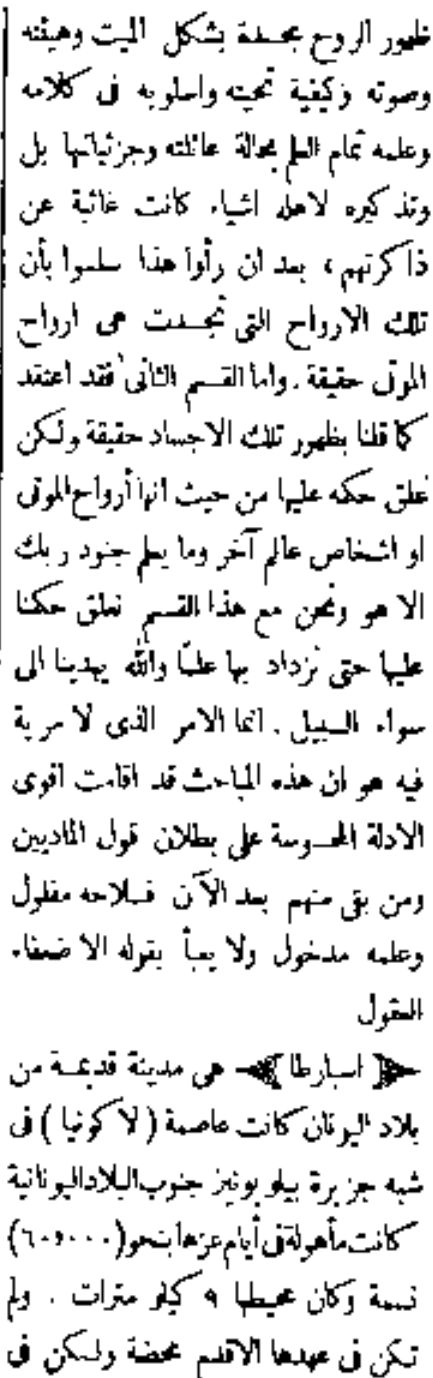 ظهور الروح مجسدة بشكل الميت وهيئته
وصوته وكيفية تحيته واسلوبه فى كلامه
وعلمه تمام العلم بحالة عائلته وجزئياتها بل
وتذكيره لاهله اشياء كانت غائبة عن
ذاكرتهم ، بعد ان رأوا هذا سلموا بأن
تلك الارواح التى تجسدت هى ارواح
الموتى حقيقة . واما القسم الثانى فقد اعتقد
كما قلنا بظهور تلك الاجساد حقيقة ولكن
علق حكمه عليها من حيث انها أرواح الموتى
او اشخاص عالم آخر وما يعلم جنود ربك
الا هو ونحن مع هذا القسم نعلق حكمنا
عليها حتى نزداد بها علمًا والله يهدينا الى
سواء السبيل . انما الامر الذى لا مرية
فيه هو ان هذه المباحث قد اقامت اقوى
الادلة المحسوسة على بطلان قول الماديين
ومن بقى منهم بعد الآن فسلاحه مفلول
وعلمه مدخول ولا يعبأ بقوله الا ضعفاء
العقول
﴿ اسبارطا ﴾ هى مدينة قديمة من
بلاد اليونان كانت عاصمة ( لاكونيا ) فى
شبه جزيرة بيلوبونيز جنوب البلاد اليونانية
كانت مأهولة فى أيام عزها بنحو (٦٠٠٠٠)
نسمة وكان محيطها ٩ كيلو مترات . ولم
تكن فى عهدها الاقدم محضة ولكن فى